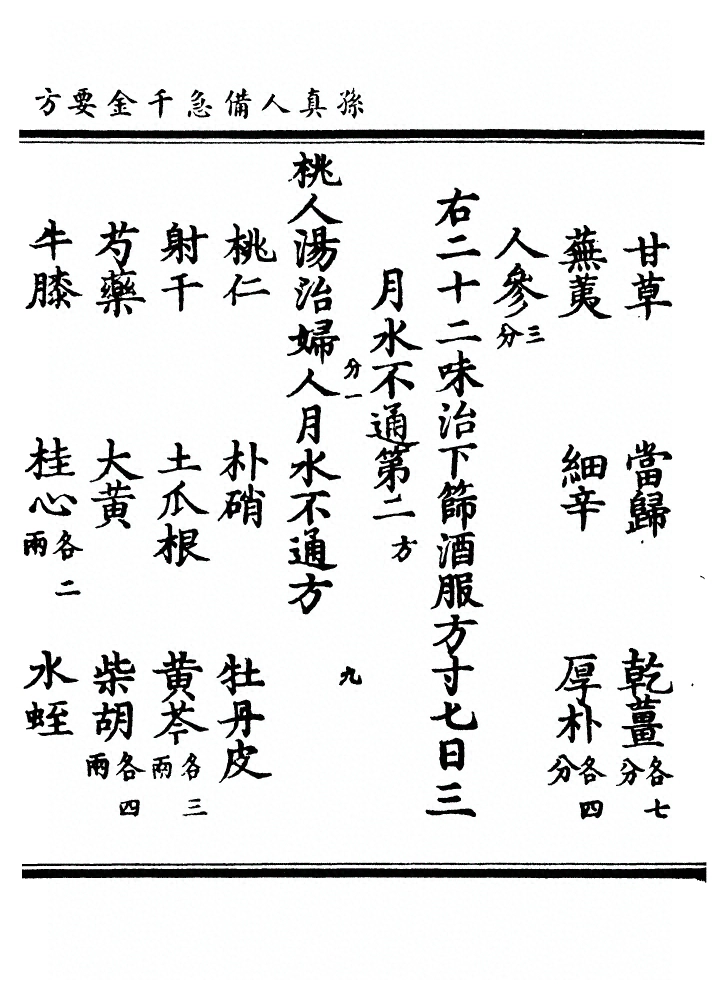 孫真人備急千金要方
甘草 當歸 乾薑各七分
蕪荑 細辛 厚朴各四分
人參三分
右二十二味治下篩酒服方寸七日三
月水不通第二方
分一 九
桃人湯治婦人月水不通方
桃仁 朴硝 牡丹皮
射干 土瓜根 黄芩各三兩
芍藥 大黄 柴胡各四兩
牛膝 桂心各二兩 水蛭